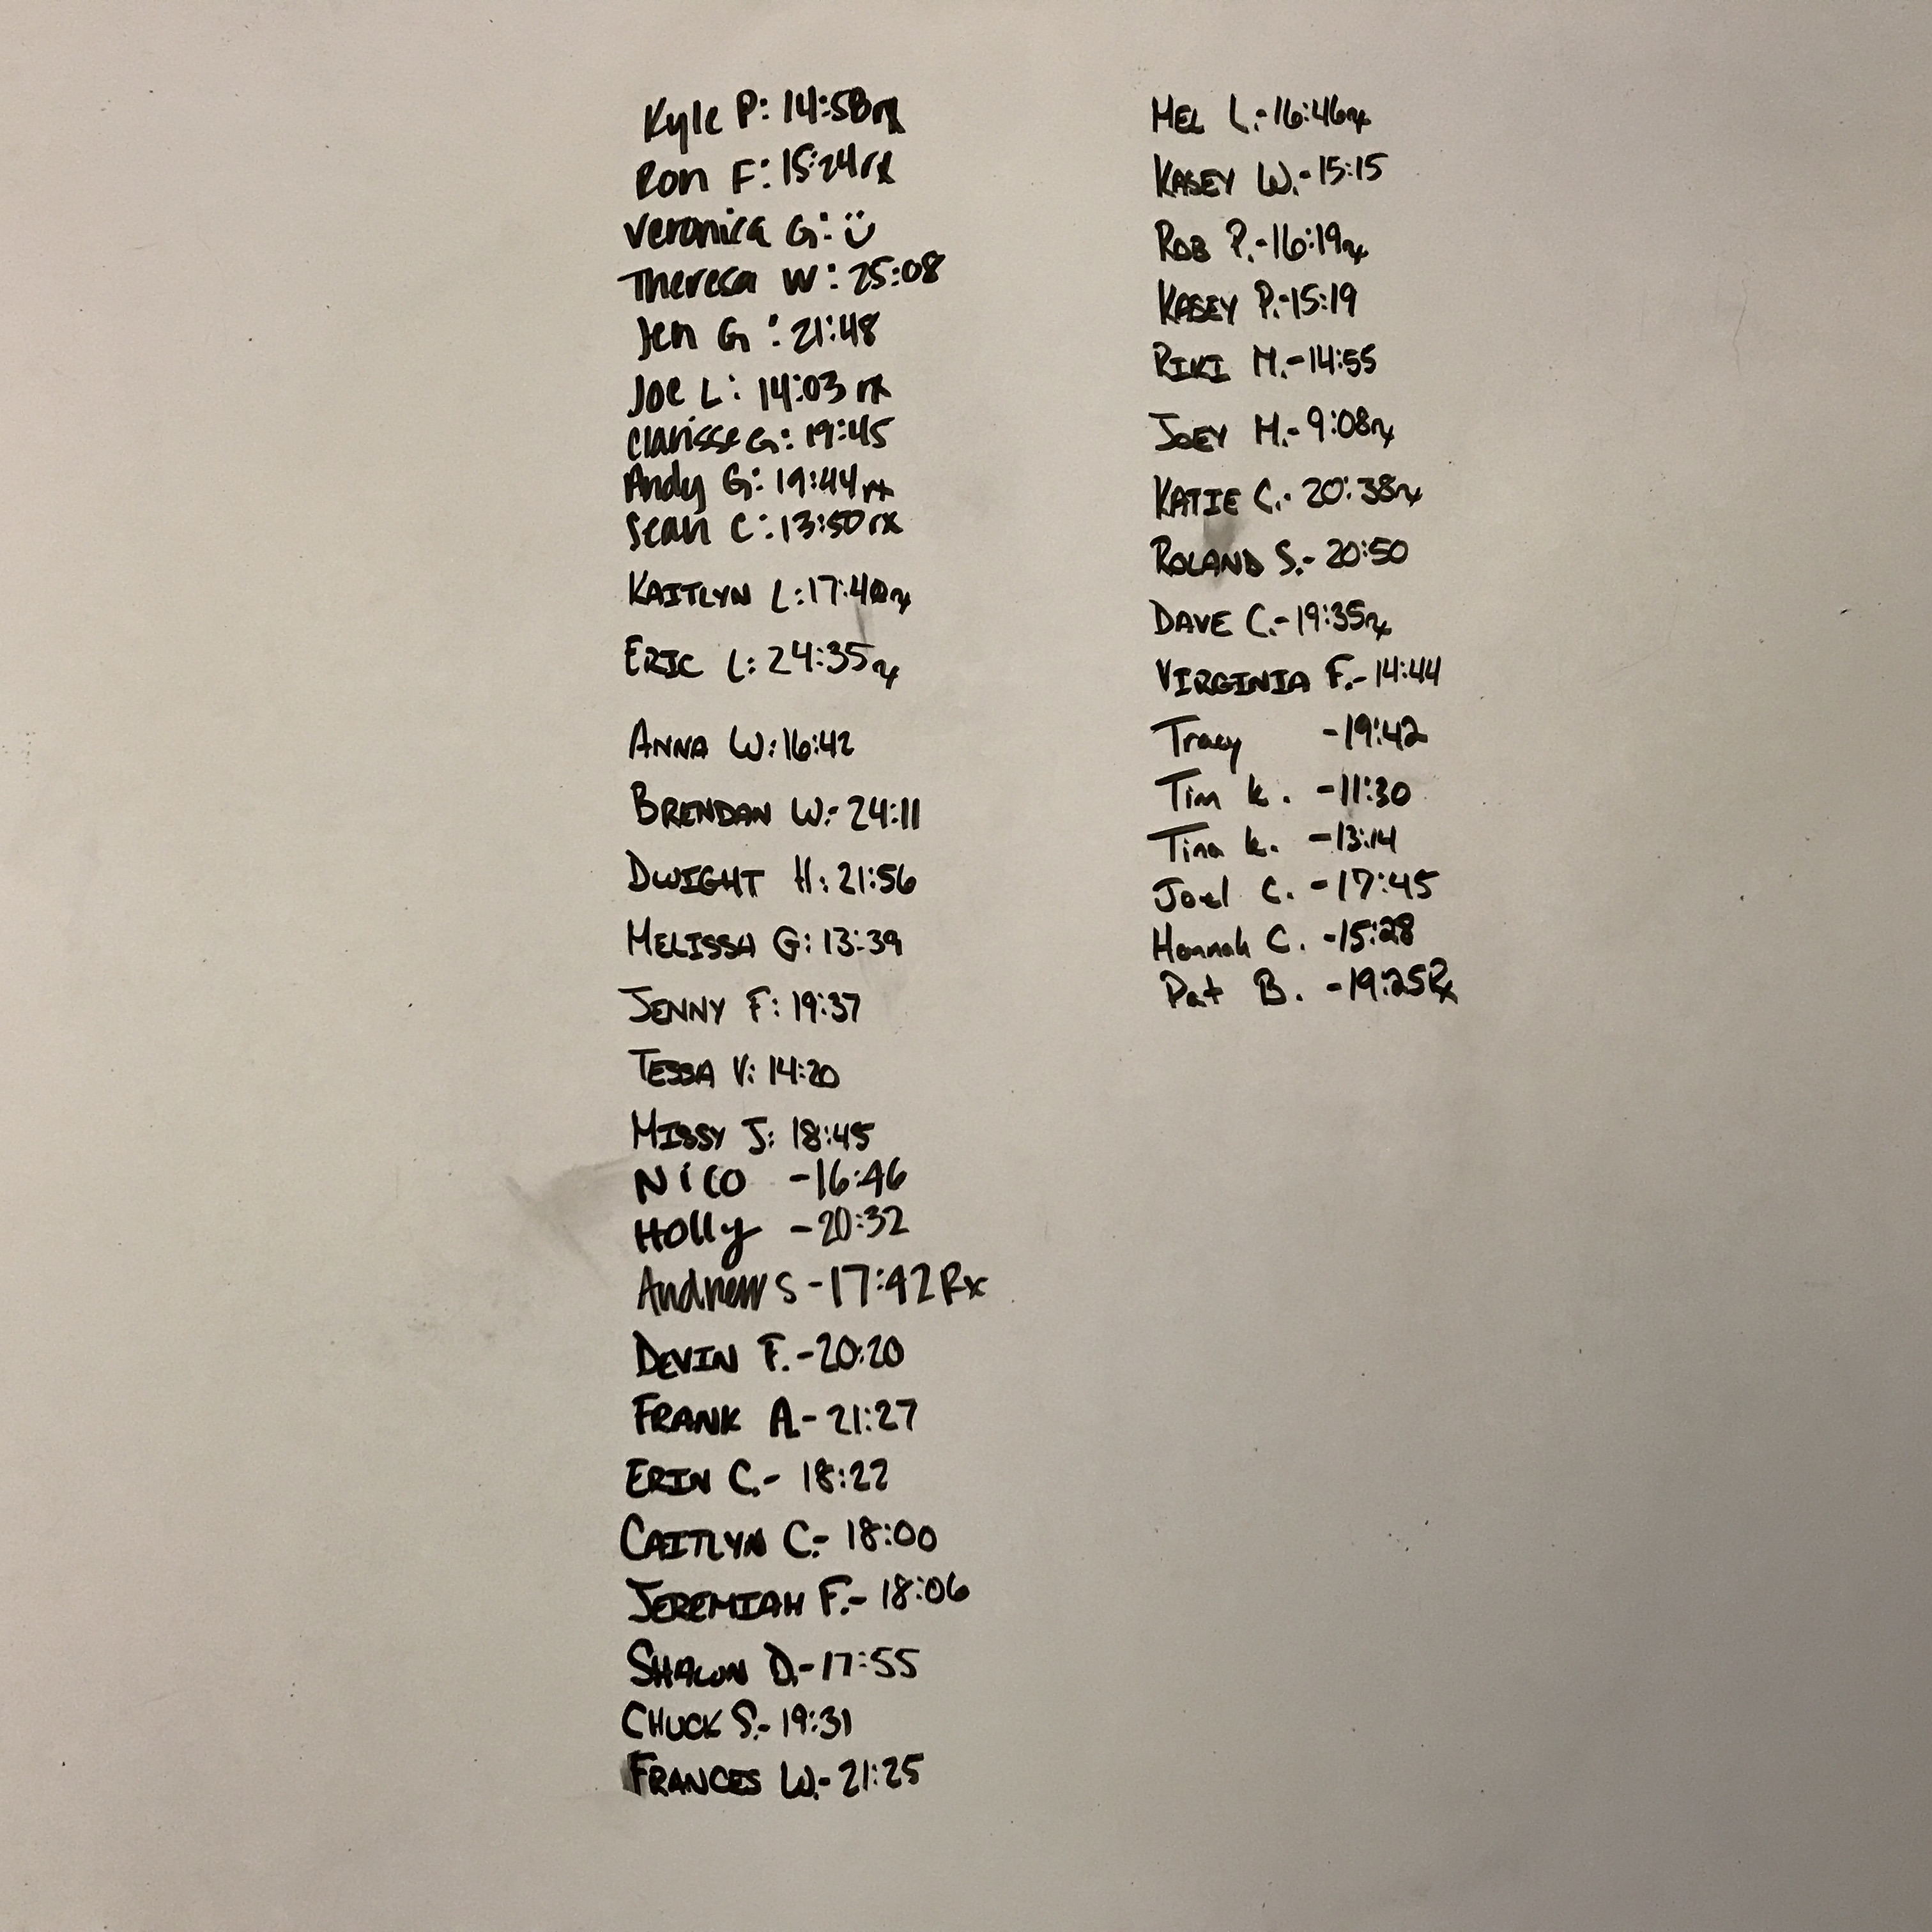 Kyle P: 14:58rx
Ron F: 15:24rx
Veronica G: ü
Theresa W: 25:08
Jen G: 21:48
Joe L: 14:03 rx
Clarisse G: 19:45
Andy G: 19:44rx
Sean C: 13:50rx
KAITLYN L: 17:40rx
ERIC L: 24:35rx
ANNA W: 16:42
BRENDAN W:- 24:11
DWIGHT H: 21:56
MELISSA G: 13:39
JENNY F: 19:37
TESSA V: 14:20
MISSY J: 18:45
Nico -16:46
Holly -20:32
Andrew S -17:42 Rx
DEVIN F.-20:20
FRANK A.- 21:27
ERIN C.- 18:22
CAITLYN C.- 18:00
JEREMIAH F.- 18:06
SHAWN D.-17:55
CHUCK S.- 19:31
FRANCES W.- 21:25
MEL L.-16:46rx
KASEY W.-15:15
ROB P.-16:19rx
KASEY P.-15:19
RIKI M.-14:55
JOEY M.- 9:08rx
KATIE C.- 20:38rx
ROLAND S.- 20:50
DAVE C.-19:35rx
VIRGINIA F.-14:44
Tracy -19:42
Tim k. -11:30
Tina k. -13:14
Joel C. -17:45
Hannah C. -15:28
Pat B. -19:25Rx